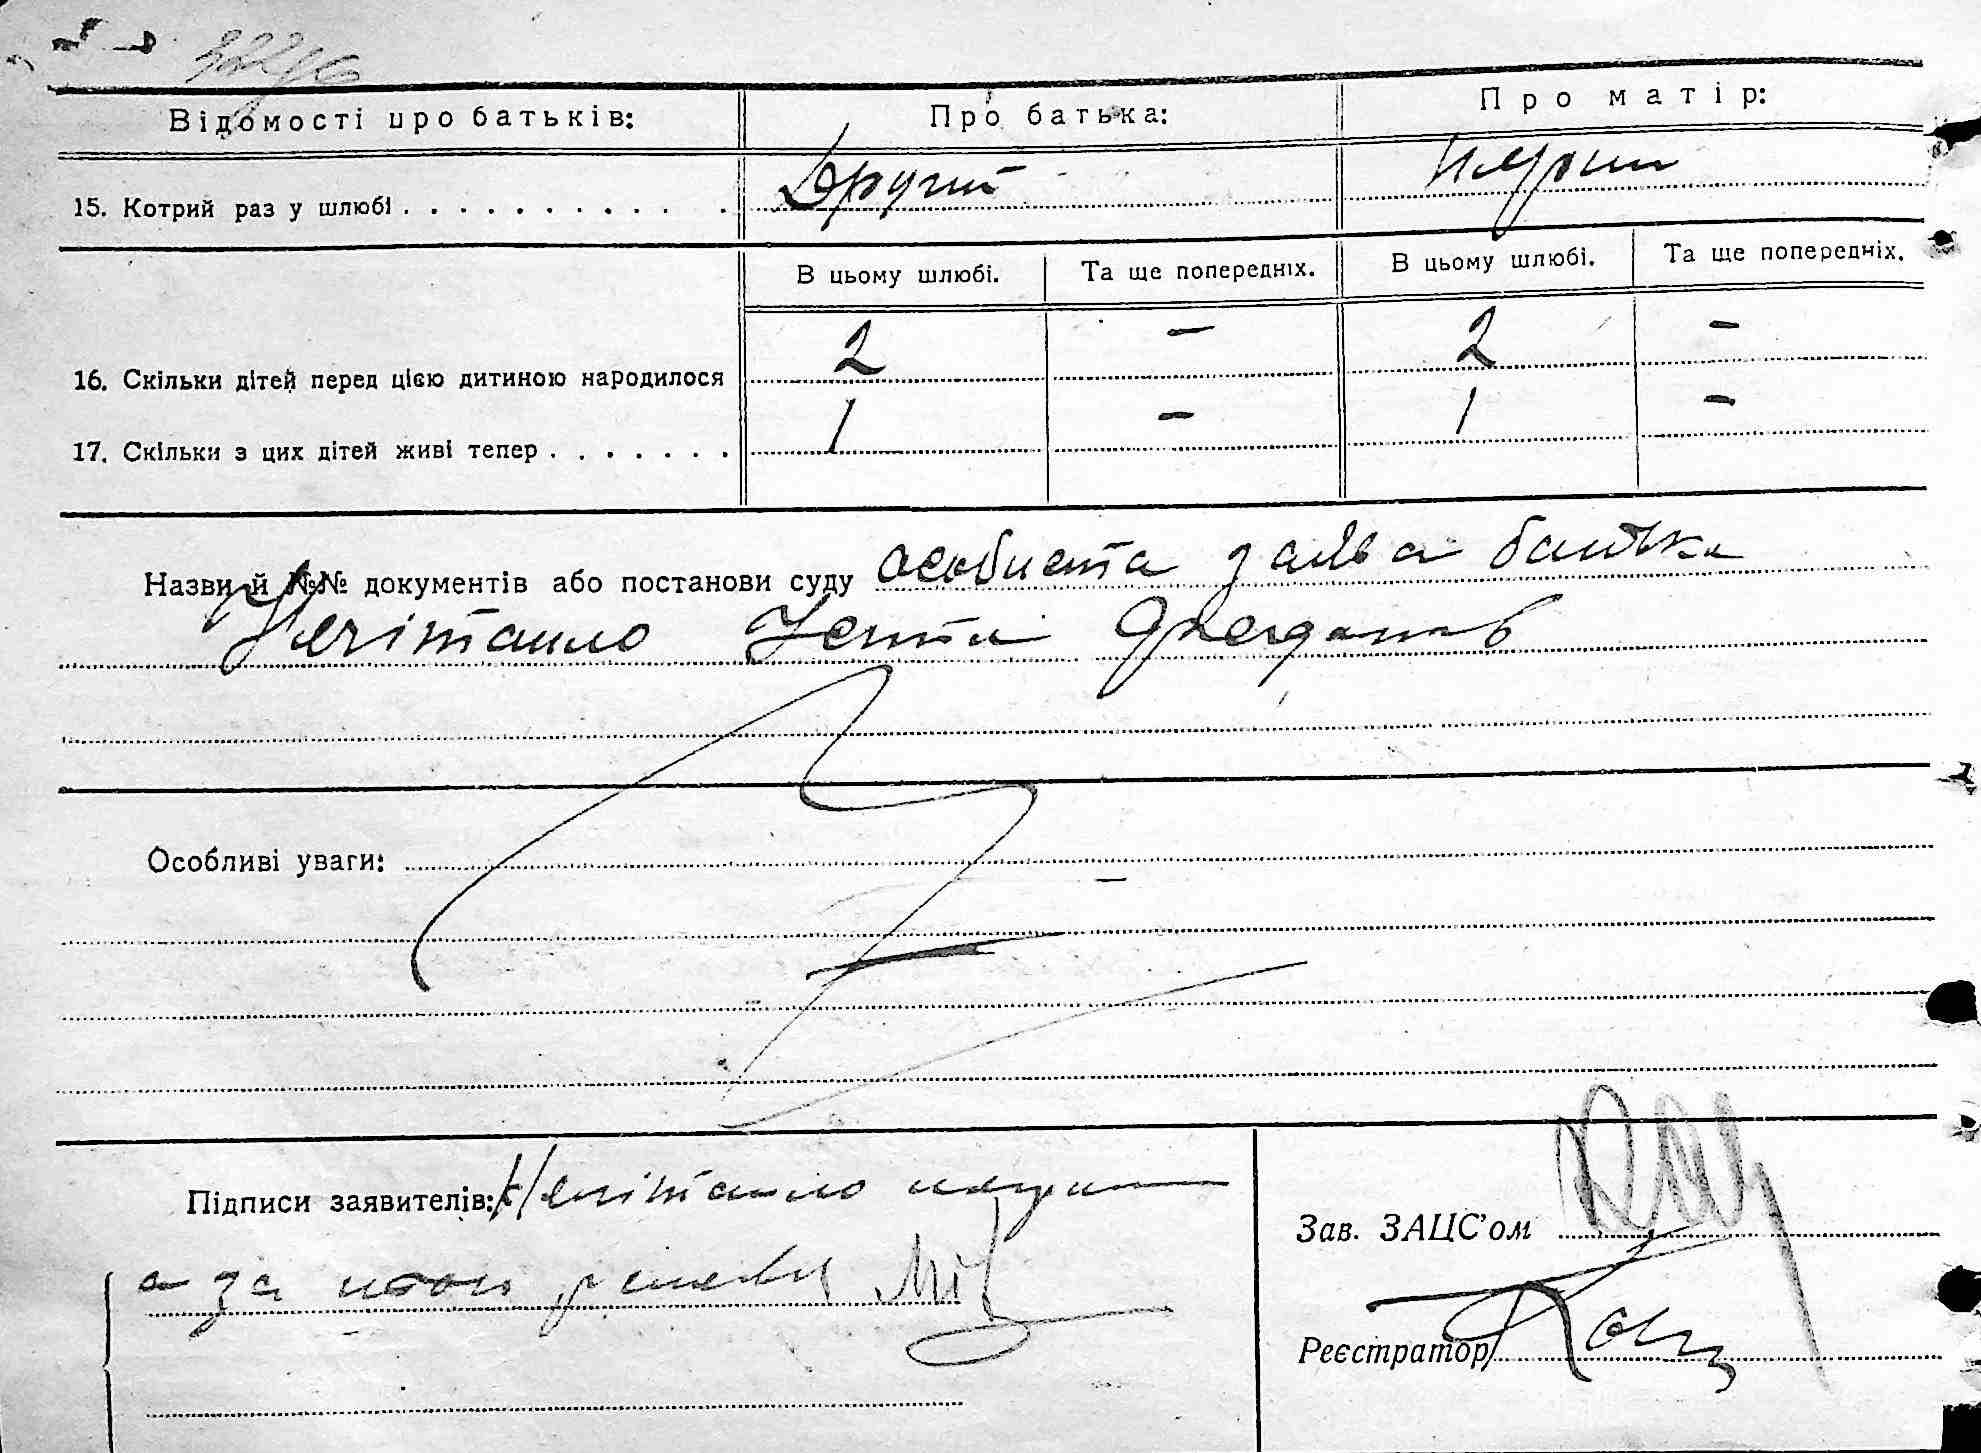 Відомості про батьків: Про батька: Про матір:
15. Котрий раз у шлюбі . . . . . . . . . . . . Другий
В цьому шлюбі. Та ще попередніх. В цьому шлюбі. Та ще попередніх.
16. Скільки дітей перед цією дитиною народилося 2 – 2 –
17. Скільки з цих дітей живі тепер . . . . . . . 1 – 1 –
Назви й №№ документів або постанови суду особиста заява батька
Нечітайло
Особливі уваги: –
Підписи заявителів: Нечітайло
а за
Зав. ЗАЦС'ом
Реєстратор